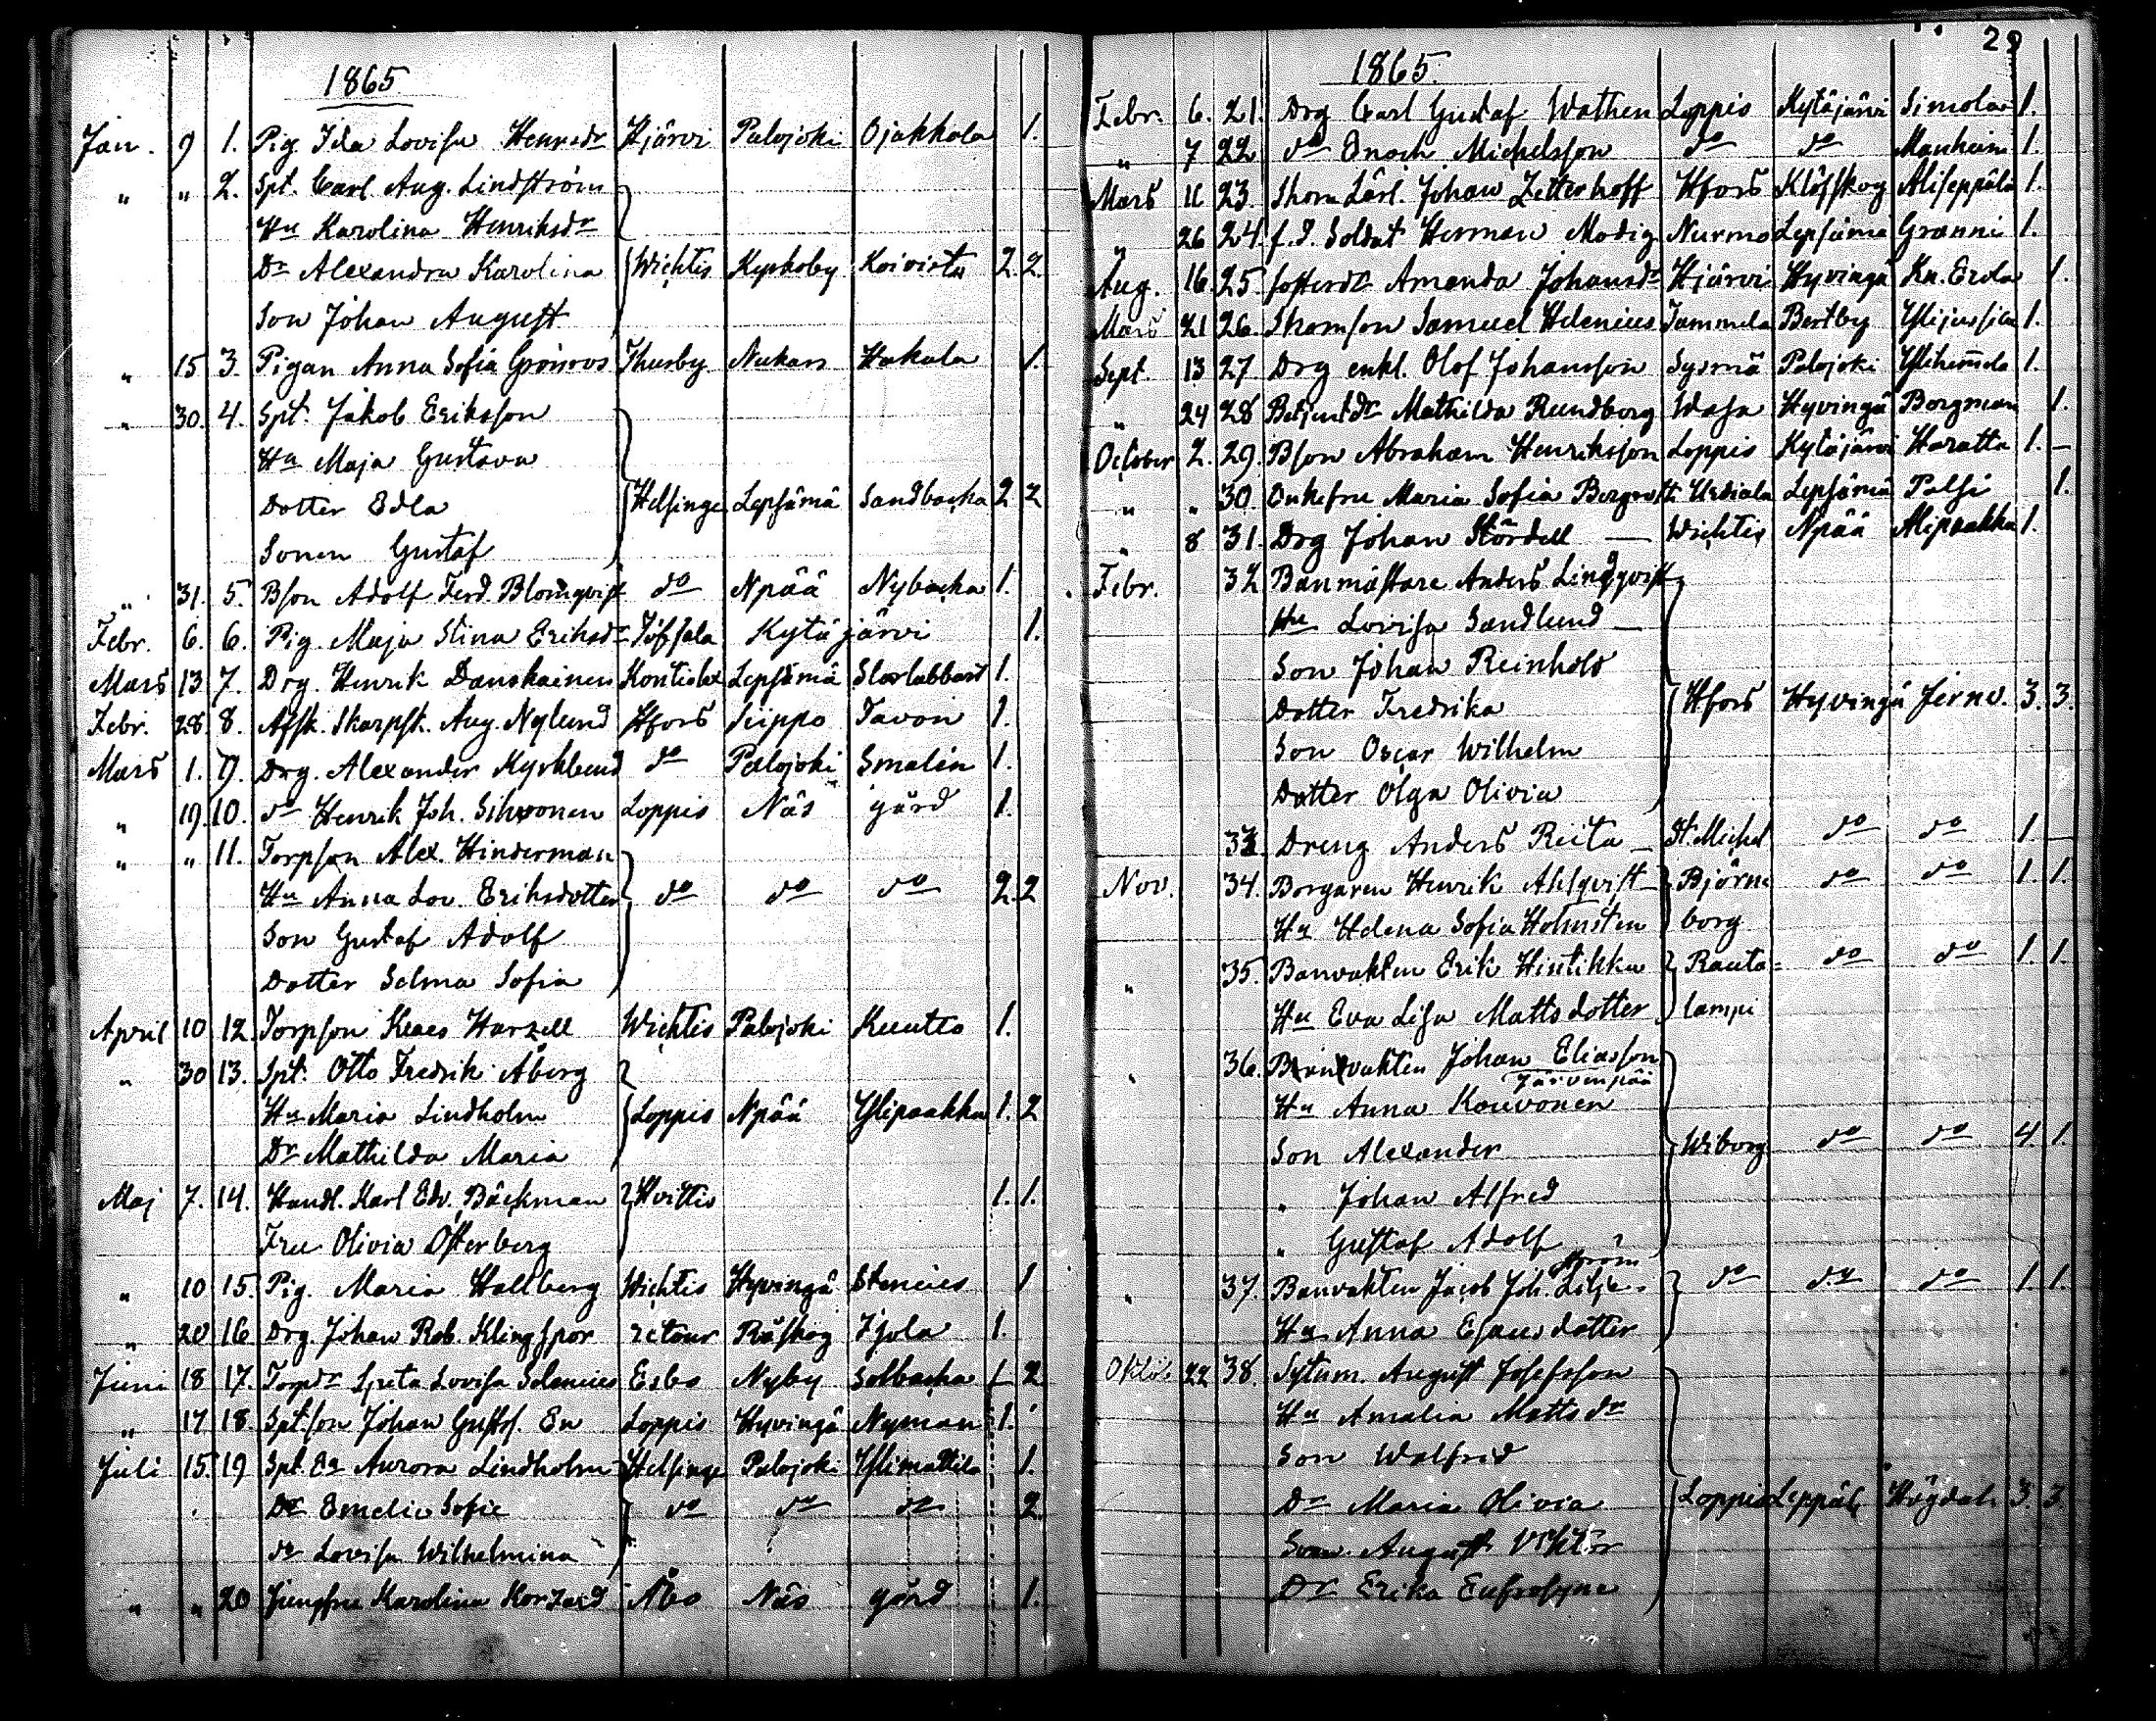 1865
Jan. 9 1. Pig. Ida Lovisa Henrsdr Hjärvi Palojoki Ojakkala 1.
" " 2. Spt. Carl Aug. Lindström
Hu Karolina Henriksdr
Dr Alexandra Karolina Wichtis Kyrkoby Koivisto 2. 2.
Son Johan August
" 15 3. Pigan Anna Sofia Grönroos Thusby Nukars Hakala 1.
" 30. 4. Spt. Jakob Eriksson
Hu Maja Gustava
Dotter Edla Helsinge Lepsämä Sandbacka 2 2
Sonen Gustaf
" 31. 5. Bson Adolf Ferd. Blomqvist do Npää Nybacka 1.
Febr. 6. 6. Pig. Maja Stina Eriksdr Jöfsala Kytäjärvi 1.
Mars 13 7. Drg. Henrik Danskainen Kontiolax Lepsämä Storlabbart 1.
Febr. 28 8. Afsk. Skarpsk. Aug. Nylund Hfors Seippo Tavon 1.
Mars 1. 9. Drg. Alexander Kyrklund do Palojoki Smalén 1.
" 19. 10. do Henrik Joh. Sihvonen Loppis Näs gård 1.
" " 11. Torpson Alex. Hinderman
Hu Anna Lov. Eriksdotter do do do 2. 2
Son Gustaf Adolf
Dotter Selma Sofia
April 10 12. Torpson Klaes Harzell Wichtis Palojoki Kuutto 1.
" 30 13. Spt. Otto Fredrik Åberg
Hu Maria Lindholm Loppis Npää Ylipaakka 1. 2
Dr Mathilda Maria
Maj 7. 14. Handl. Karl Edv. Bäckman Hvittis 1. 1.
Fru Olivia Österberg
" 10 15. Pig. Maria Hallberg Wichtis Hyvingä Stenius 1
" 20 16 Drg. Johan Rob. Klingspor retour Råskog Ijola 1.
Juni 18 17. Torpdr Greta Lovisa Selenius Esbo Nyby Solbacka 1 2
" 17 18. Spt.son Johan Gustaf. En Loppis Hyvingä Nyman 1.
Juli 15. 19 Spt. Ea Aurora Lindholm Helsinge Palojoki Ylimattila 1.
Dr Emelie Sofie do do do 2.
dr Lovisa Wilhelmina
" " 20 Jungfru Karolina Korzeid Åbo Näs gård 1.
29
1865.
Febr. 6. 21. Drg Carl Gustaf Wathen Loppis Kytäjärvi Simola 1.
" 7 22 do Enoch Michelsson do do Manheim 1.
Mars 11 23. Skom.Lärl. Johan Zetterhoff Hfors Klöfskog Aliseppälä 1.
" 26 24. f.d. Soldat Herman Modig Nurmo Lepsämä Granni 1.
Aug. 16. 25. fosterdr Amanda Johansdr Hjärvi Hyvingä Kn. Erola 1.
Mars 21 26. Skomson Samuel Helenius Tammela Bertby Ylijussila 1.
Sept. 13 27. Drg enkl. Olof Johansson Sysmä Palojoki Ylihemula 1.
" 24 28 Betjentdr Mathilda Rundborg Wasa Hyvingä Borgman 1.
October 2. 29. Bson Abraham Henriksson Loppis Kytäjärvi Haratta 1. –
" " 30. Enkefru Maria Sofia Bergroth Urdiala Lepsämä Palsi 1.
" 8 31. Drg Johan Nördell Wichtis Npää Alipaakka 1.
Febr. 32 Banmästare Anders Lindqvist
Hu Lovisa Sandlund
Son Johan Reinhold
Dotter Fredrika Hfors Hyvingä Jernv. 3. 3.
Son Oscar Wilhelm
Dotter Olga Olivia
33. Dreng Anders Riita St. Michel do do 1. –
Nov. 34. Borgaren Henrik Ahlqvist Björne do do 1. 1.
Hu Helena Sofia Holmsten borg
" 35. Banvakten Erik Hintikka Rauta= do do 1. 1.
Hu Eva Lisa Mattsdotter lampi
" 36. Banvakten Johan Eliasson
Järvenpää
Hu Anna Kouvonen
Son Alexander Wiborg do do 4. 1.
" Johan Alfred
" Gustaf Adolf
ström
" 37. Banvakten Jacob Joh. Lilje= do do do 1. 1.
Hu Anna Esaudotter
Oktob. 22 38. Sytum. August Josefsson
Hu Amalia Mattsdr
Son Walfrid
Dr Maria Olivia Loppis Leppäl. Högdal 3. 3.
Son August Viktor
Dr Erika Eufrosyne